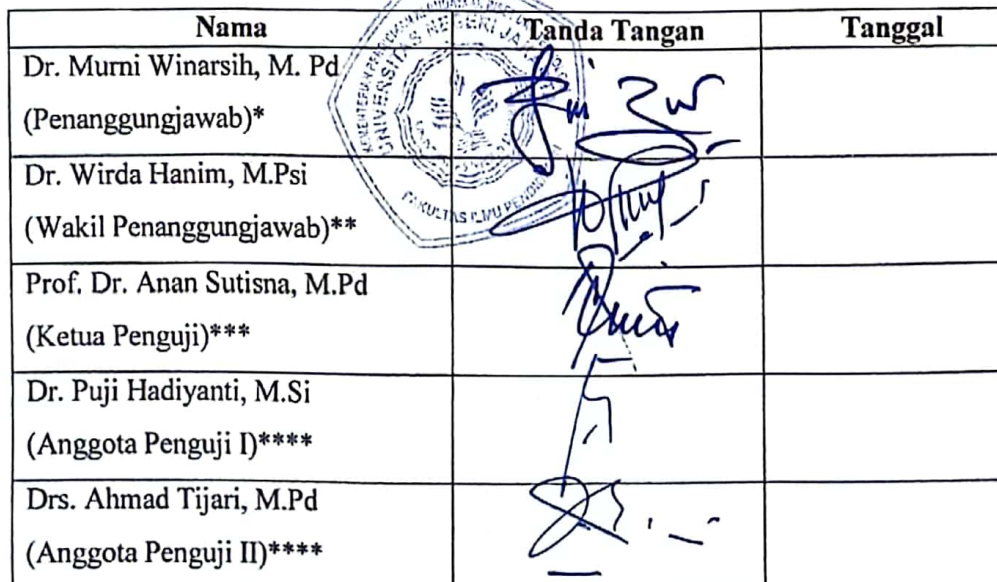 Nama Tanda Tangan Tanggal
Dr. Murni Winarsih, M. Pd
(Penanggungjawab)*
Dr. Wirda Hanim, M.Psi
(Wakil Penanggungjawab)**
Prof. Dr. Anan Sutisna, M.Pd
(Ketua Penguji)***
Dr. Puji Hadiyanti, M.Si
(Anggota Penguji I)****
Drs. Ahmad Tijari, M.Pd
(Anggota Penguji II)****
UNIVERSITAS NEGERI
FAKULTAS ILMU